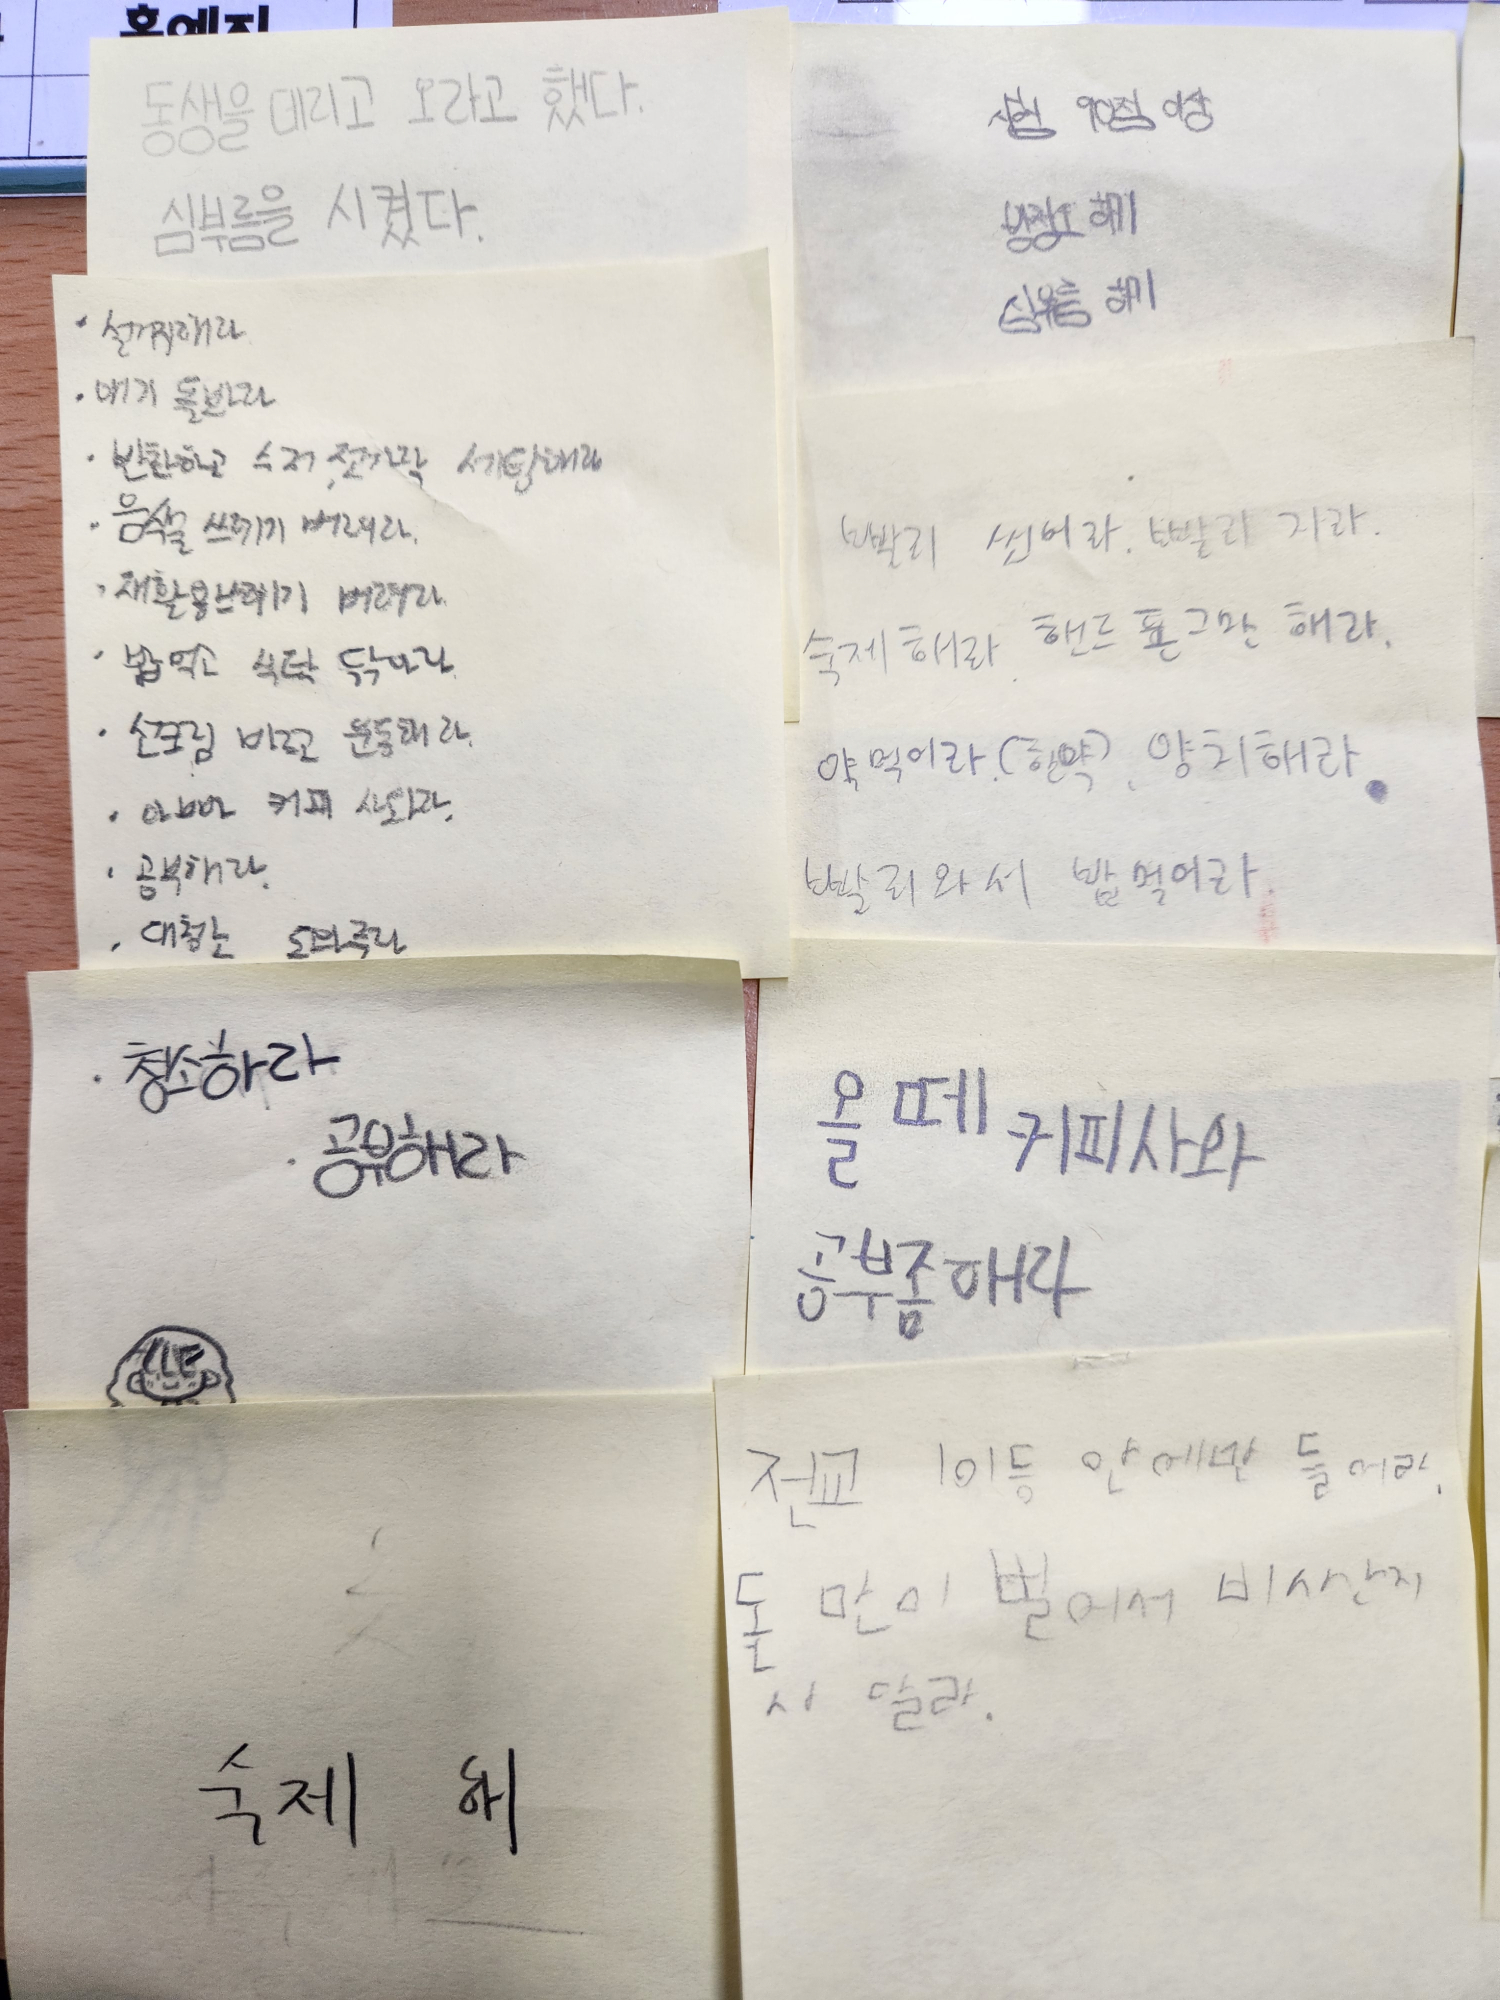 홍예진
동생을 데리고 오라고 했다.
심부름을 시켰다.
시험 90점 이상
방청소 하기
심부름 하기
· 설거지해라
· 애기 돌봐라
· 반찬하고 수저, 젓가락 세팅해라
· 음식물 쓰레기 버려라.
· 재활용쓰레기 버려라.
· 밥먹고 식탁 닦아라.
· 선크림 바르고 운동해라.
· 아빠 커피 사와라.
· 공부해라.
· 대청소 도와주라
빨리 씻어라. 빨리 자라.
숙제해라. 핸드폰그만 해라.
약먹어라.(한약). 양치해라.
빨리와서 밥먹어라.
· 청소하라
· 공유해라
올 떼 커피사와
공부좀해라
숙제 해
전교 10이등 안에만 들어라.
돈 만이 벌어서 비사난지
사 달라.